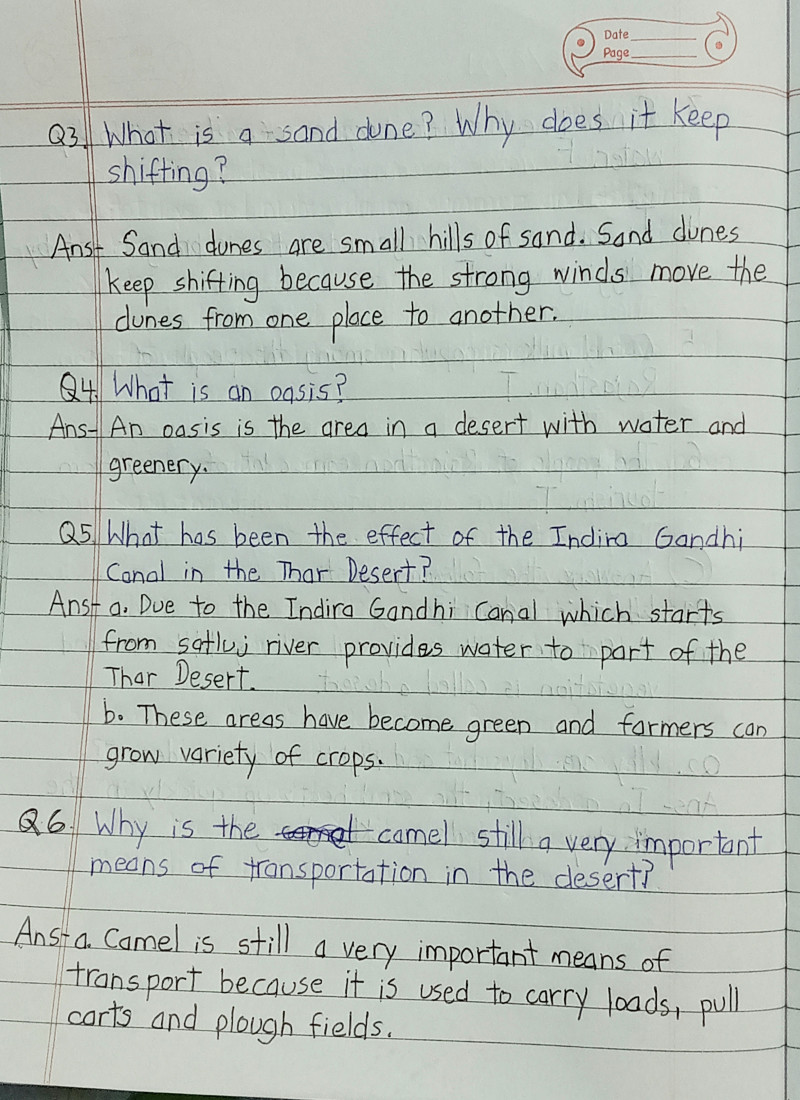 Date
Page
Q3. What is a sand dune? Why does it keep
shifting?
Ans- Sand dunes are small hills of sand. Sand dunes
keep shifting because the strong winds move the
dunes from one place to another.
Q4. What is an oasis?
Ans- An oasis is the area in a desert with water and
greenery.
Q5. What has been the effect of the Indira Gandhi
Canal in the Thar Desert?
Ans- a. Due to the Indira Gandhi Canal which starts
from satluj river provides water to part of the
Thar Desert.
b. These areas have become green and farmers can
grow variety of crops.
Q6. Why is the camel still a very important
means of transportation in the desert?
Ans- a. Camel is still a very important means of
transport because it is used to carry loads, pull
carts and plough fields.